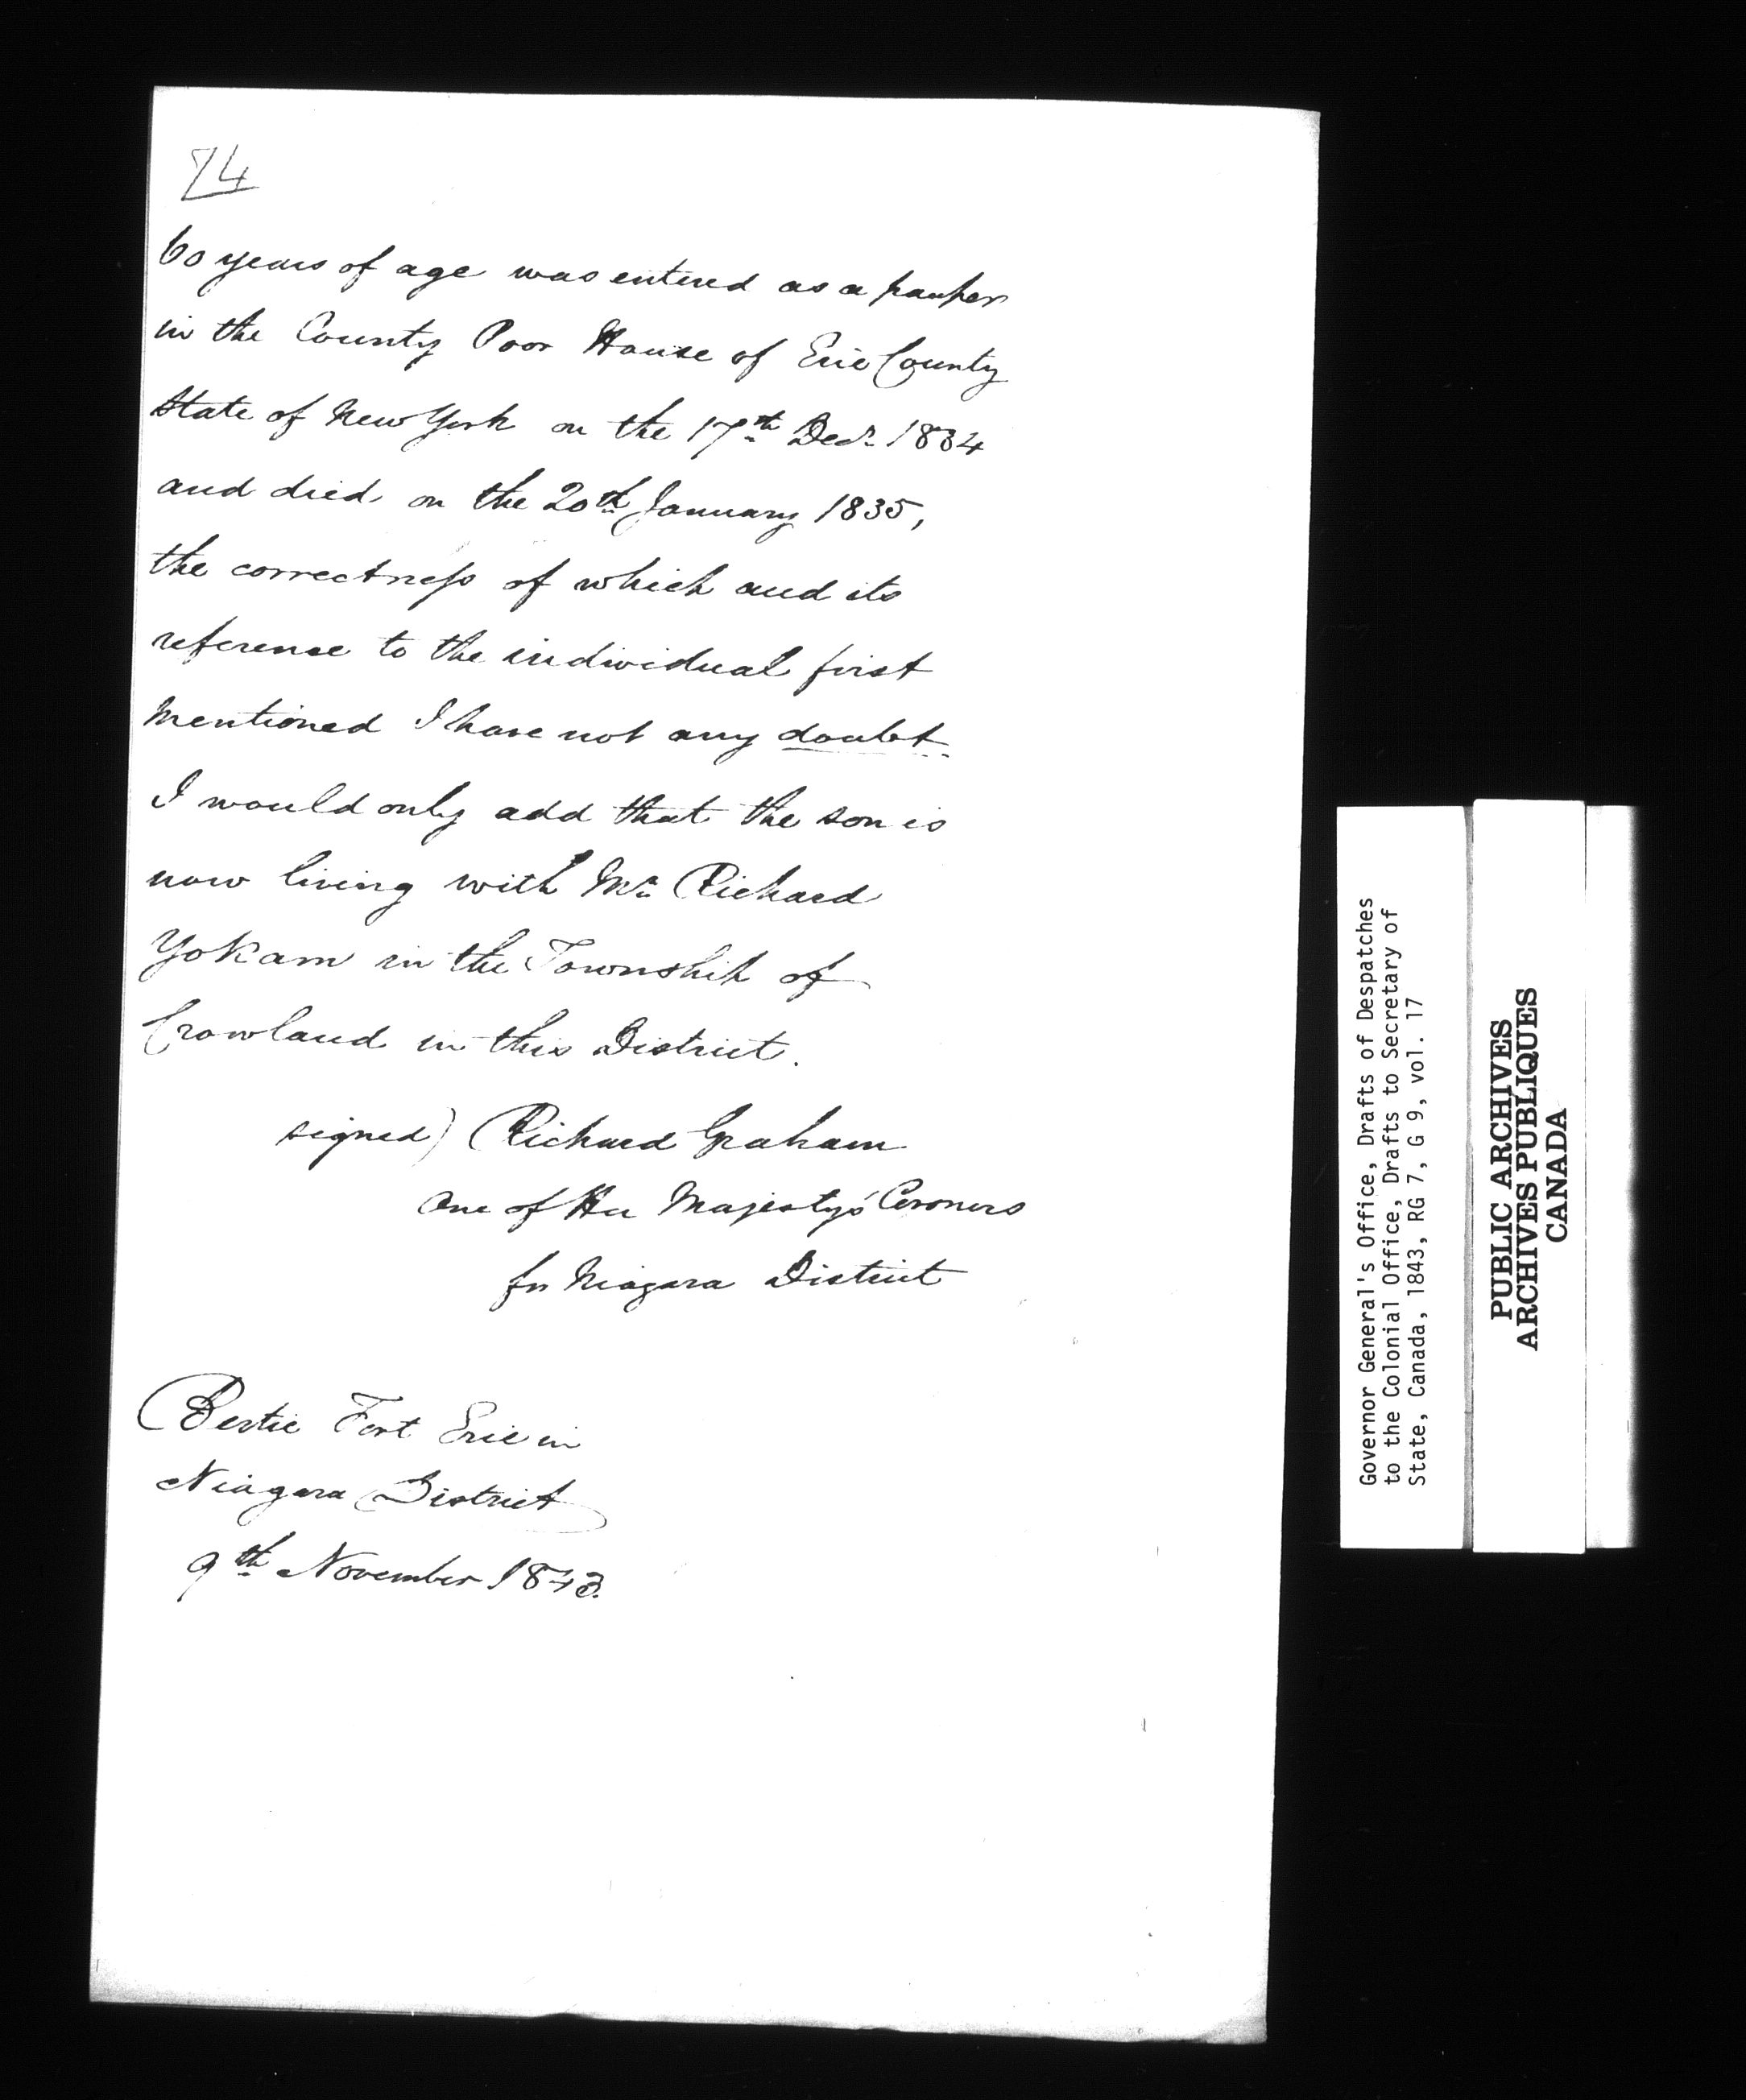 74
60 years of age was entered as a pauper
in the County Poor House of Erie County
State of New York on the 17th Decr. 1834
and died on the 20th January 1835,
the correctness of which and its
reference to the individual first
mentioned I have not any doubt.
I would only add that the son is
now living with Mr. Richard
Yokam in the Township of
Crowland in this District.
signed) Richard Graham
One of Her Majesty's Coroners
for Niagara District
Bertie Fort Erie in
Niagara District
9th November 1843.
Governor General's Office, Drafts of Despatches
to the Colonial Office, Drafts to Secretary of
State, Canada, 1843, RG 7, G 9, vol. 17
PUBLIC ARCHIVES
ARCHIVES PUBLIQUES
CANADA